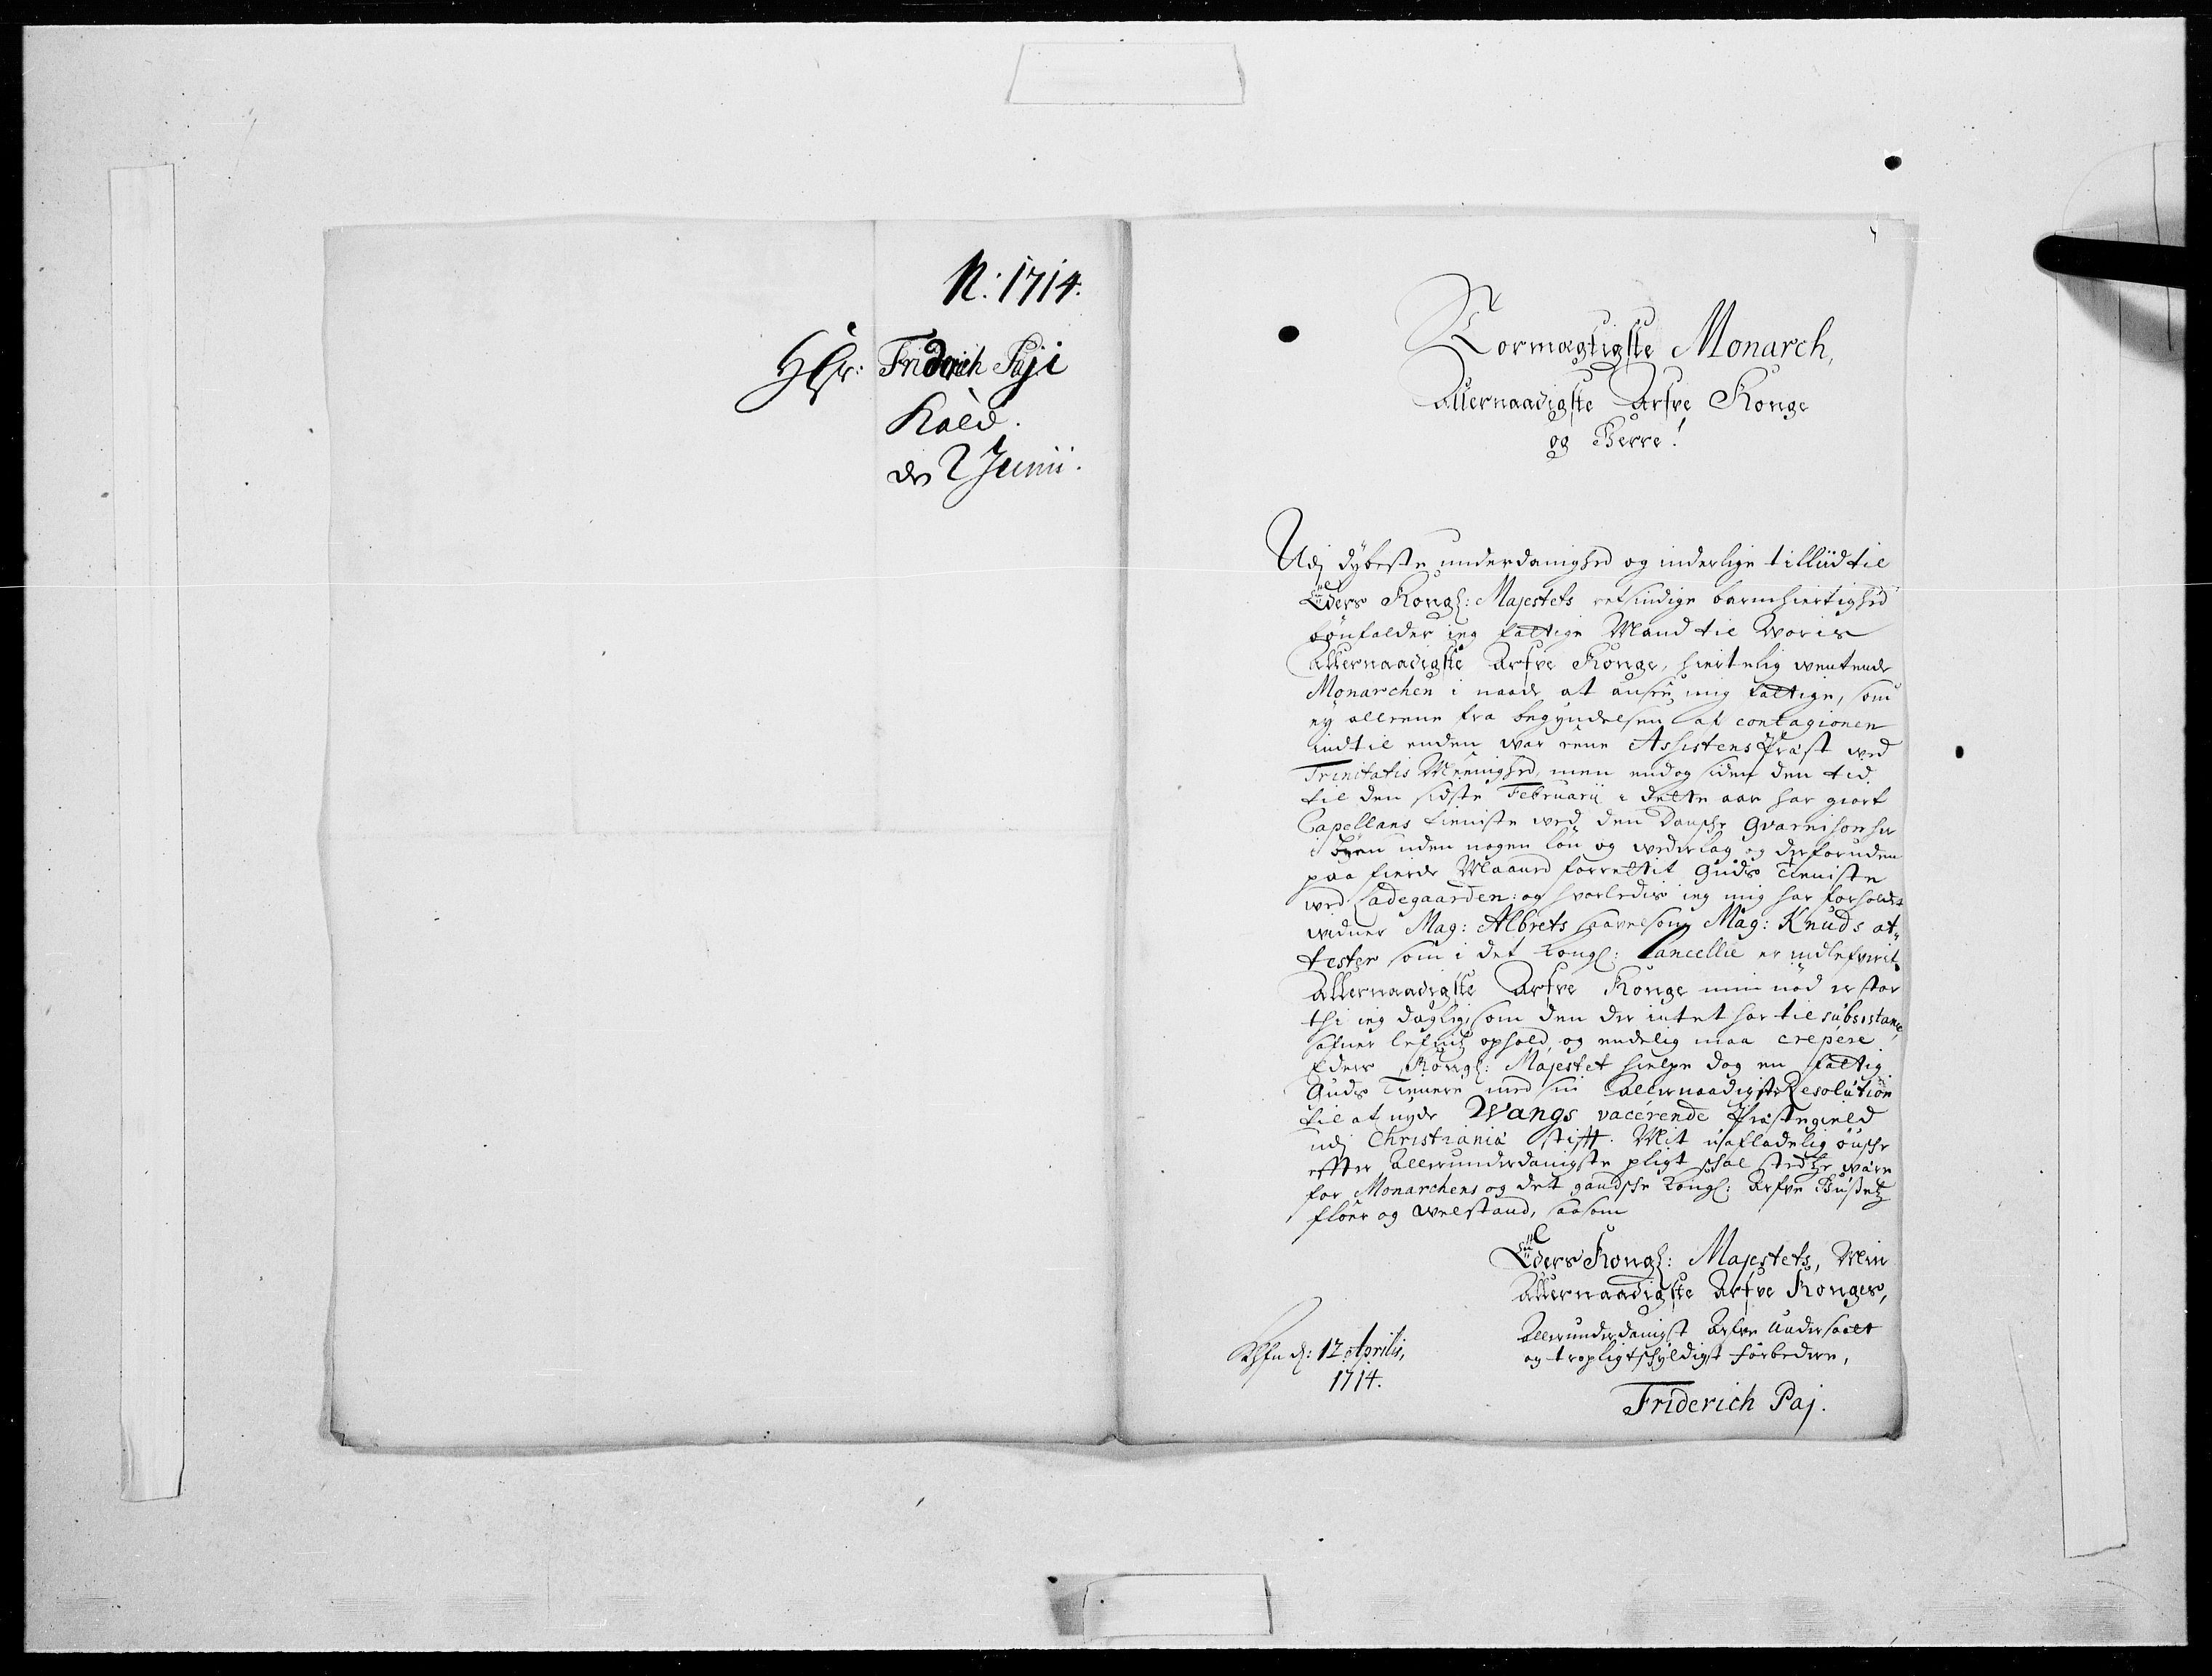 N: 1714.
Hr: Friderich Paji
Kald.
d 2 Junii.
Stormægtigste Monarch,
Allernaadigste Arfve Konge
og Herre!
Udj dybeste underdanighed og inderlige tilliid til
Eders Kongl: Majestets retsindige barmhiertighed
bønfalder ieg fattige Mand til Woris
Allernaadigste Arfve Konge, hiertelig wentende
Monarchen i naade at ansee mig fattige, som
ey alleene fra begyndelsen af contagionen
indtil enden war eene Assistens Præst wed
Trinitatis Meenighed, men endog siden den tid
til den sidste Februarij i dette aar har giort
Capellans tieniste wed den Danske Gvarnison her
i Byen uden nogen løn og wederlag og der foruden
paa fierde Maaned forrettit Guds Tieniste
wed Ladegaarden: og hvorledis ieg mig har forholdet
widner Mag: Albrets saavelsom Mag: Knuds at„
tester som i det Kongl: Cancellie er indlefverit.
Allernaadigste Arfve Konge min nød er stor
thi ieg daglig, som den der intet har til subsistance,
safner lefnitz ophold, og endelig maa crepere
Eders Kongl: Majestet hielpe dog en fattig
Guds Tienere med sin allernaadigste Resolution
til at nyde Wangs vacerende Præstegield
udj Christiania Stift. Mit uafladelig ønske
effter allerunderdanigste pligt skal stedtze wære
for Monarchens og det gandske Kongl: Arfve Huusetz
floer og welstand, saasom
Eders Kongl: Majestets, Min
Allernaadigste Arfve Konges,
Allerunderdanigst Arfve Undersaatt
og tropligtskyldigst forbedere,
Khfn d: 12 Aprilis,
1714.
Friderich Paj.